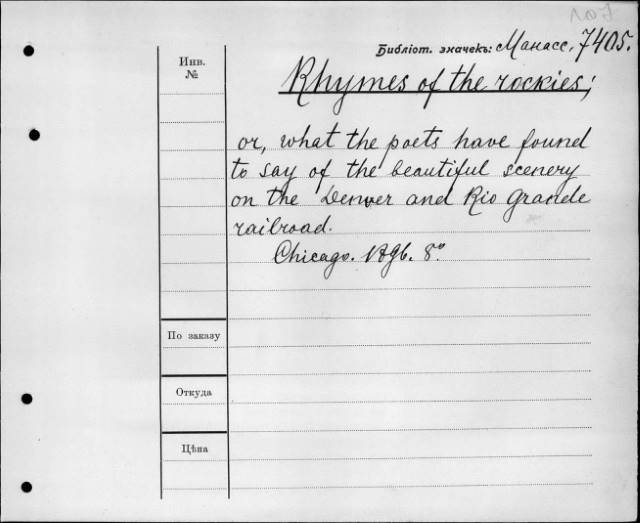 Библіот. значекъ: Манасс. 7405.
Инв.
№
Rhymes of the rockies;
or, what the poets have found
to say of the beautiful scenery
on the Denver and Rio Grande
railroad.
Chicago. 1896. 8°
По заказу
Откуда
Цѣна